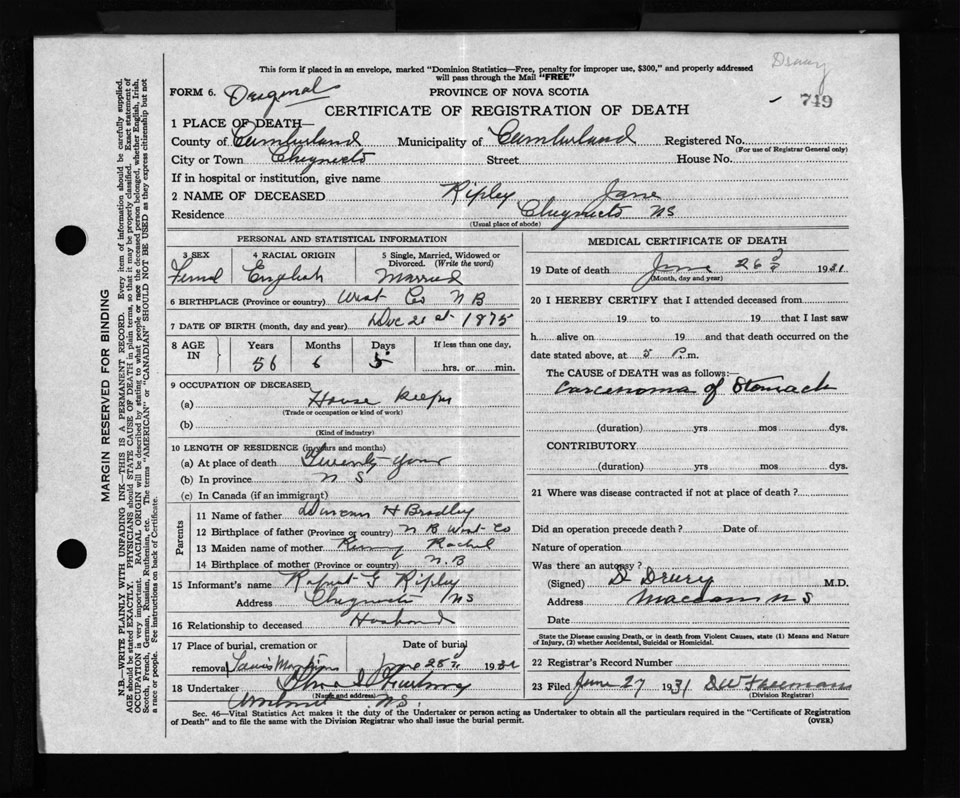 Drury
This form if placed in an envelope, marked "Dominion Statistics—Free, penalty for improper use, $300," and properly addressed
will pass through the Mail "FREE"
FORM 6. Original PROVINCE OF NOVA SCOTIA 749
CERTIFICATE OF REGISTRATION OF DEATH
1 PLACE OF DEATH—
County of Cumberland Municipality of Cumberland Registered No.
(For use of Registrar General only)
City or Town Chignecto Street House No.
If in hospital or institution, give name
2 NAME OF DECEASED Ripley Jane
Residence Chignecto NS
(Usual place of abode)
PERSONAL AND STATISTICAL INFORMATION
3 SEX 4 RACIAL ORIGIN 5 Single, Married, Widowed or
Divorced. (Write the word)
Femal English Married
6 BIRTHPLACE (Province or country) West Co N B
7 DATE OF BIRTH (month, day and year) Dec 21 st 1875
8 AGE IN Years Months Days If less than one day,
56 6 5 hrs. or min.
9 OCCUPATION OF DECEASED
(a) House Keeper
(Trade or occupation or kind of work)
(b)
(Kind of industry)
10 LENGTH OF RESIDENCE (in years and months)
(a) At place of death Twenty year
(b) In province N S
(c) In Canada (if an immigrant)
Parents
11 Name of father Duncan H Bradley
12 Birthplace of father (Province or country) N B West Co
13 Maiden name of mother Rachel
14 Birthplace of mother (Province or country) N.B
15 Informant's name Robert G Ripley
Address Chignecto NS
16 Relationship to deceased Husband
17 Place of burial, cremation or Date of burial
removal June 28 1931
18 Undertaker
(Name and address)
Amherst N.S.
MEDICAL CERTIFICATE OF DEATH
19 Date of death June 26 1931
(Month, day and year)
20 I HEREBY CERTIFY that I attended deceased from
19 to 19 that I last saw
h alive on 19 and that death occurred on the
date stated above, at 5 P.m.
The CAUSE OF DEATH was as follows:—
Carcenoma of Stomach
(duration) yrs mos dys.
CONTRIBUTORY
(duration) yrs mos. dys.
21 Where was disease contracted if not at place of death?
Did an operation precede death? Date of
Nature of operation
Was there an autopsy?
(Signed) D Drury M.D.
Address Maccan N S
Date
State the Disease causing Death, or in death from Violent Causes, state (1) Means and Nature
of Injury, (2) whether Accidental, Suicidal or Homicidal.
22 Registrar's Record Number
23 Filed June 27 1931 D W Freeman
(Division Registrar)
Sec. 46—Vital Statistics Act makes it the duty of the Undertaker or person acting as Undertaker to obtain all the particulars required in the "Certificate of Registration
of Death" and to file the same with the Division Registrar who shall issue the burial permit.
(OVER)
MARGIN RESERVED FOR BINDING
N.B.—WRITE PLAINLY WITH UNFADING INK—THIS IS A PERMANENT RECORD. Every item of information should be carefully supplied.
AGE should be stated EXACTLY. PHYSICIANS should STATE CAUSE OF DEATH in plain terms, so that it may be properly classified. Exact statement of
OCCUPATION is very important. RACIAL ORIGIN will be described by stating to what people or race the deceased person belonged, whether English, Irish,
Scotch, French, German, Russian, Ruthenian, etc. The terms "AMERICAN" or "CANADIAN" SHOULD NOT BE USED as they express citizenship but not
a race or people. See instructions on back of Certificate.